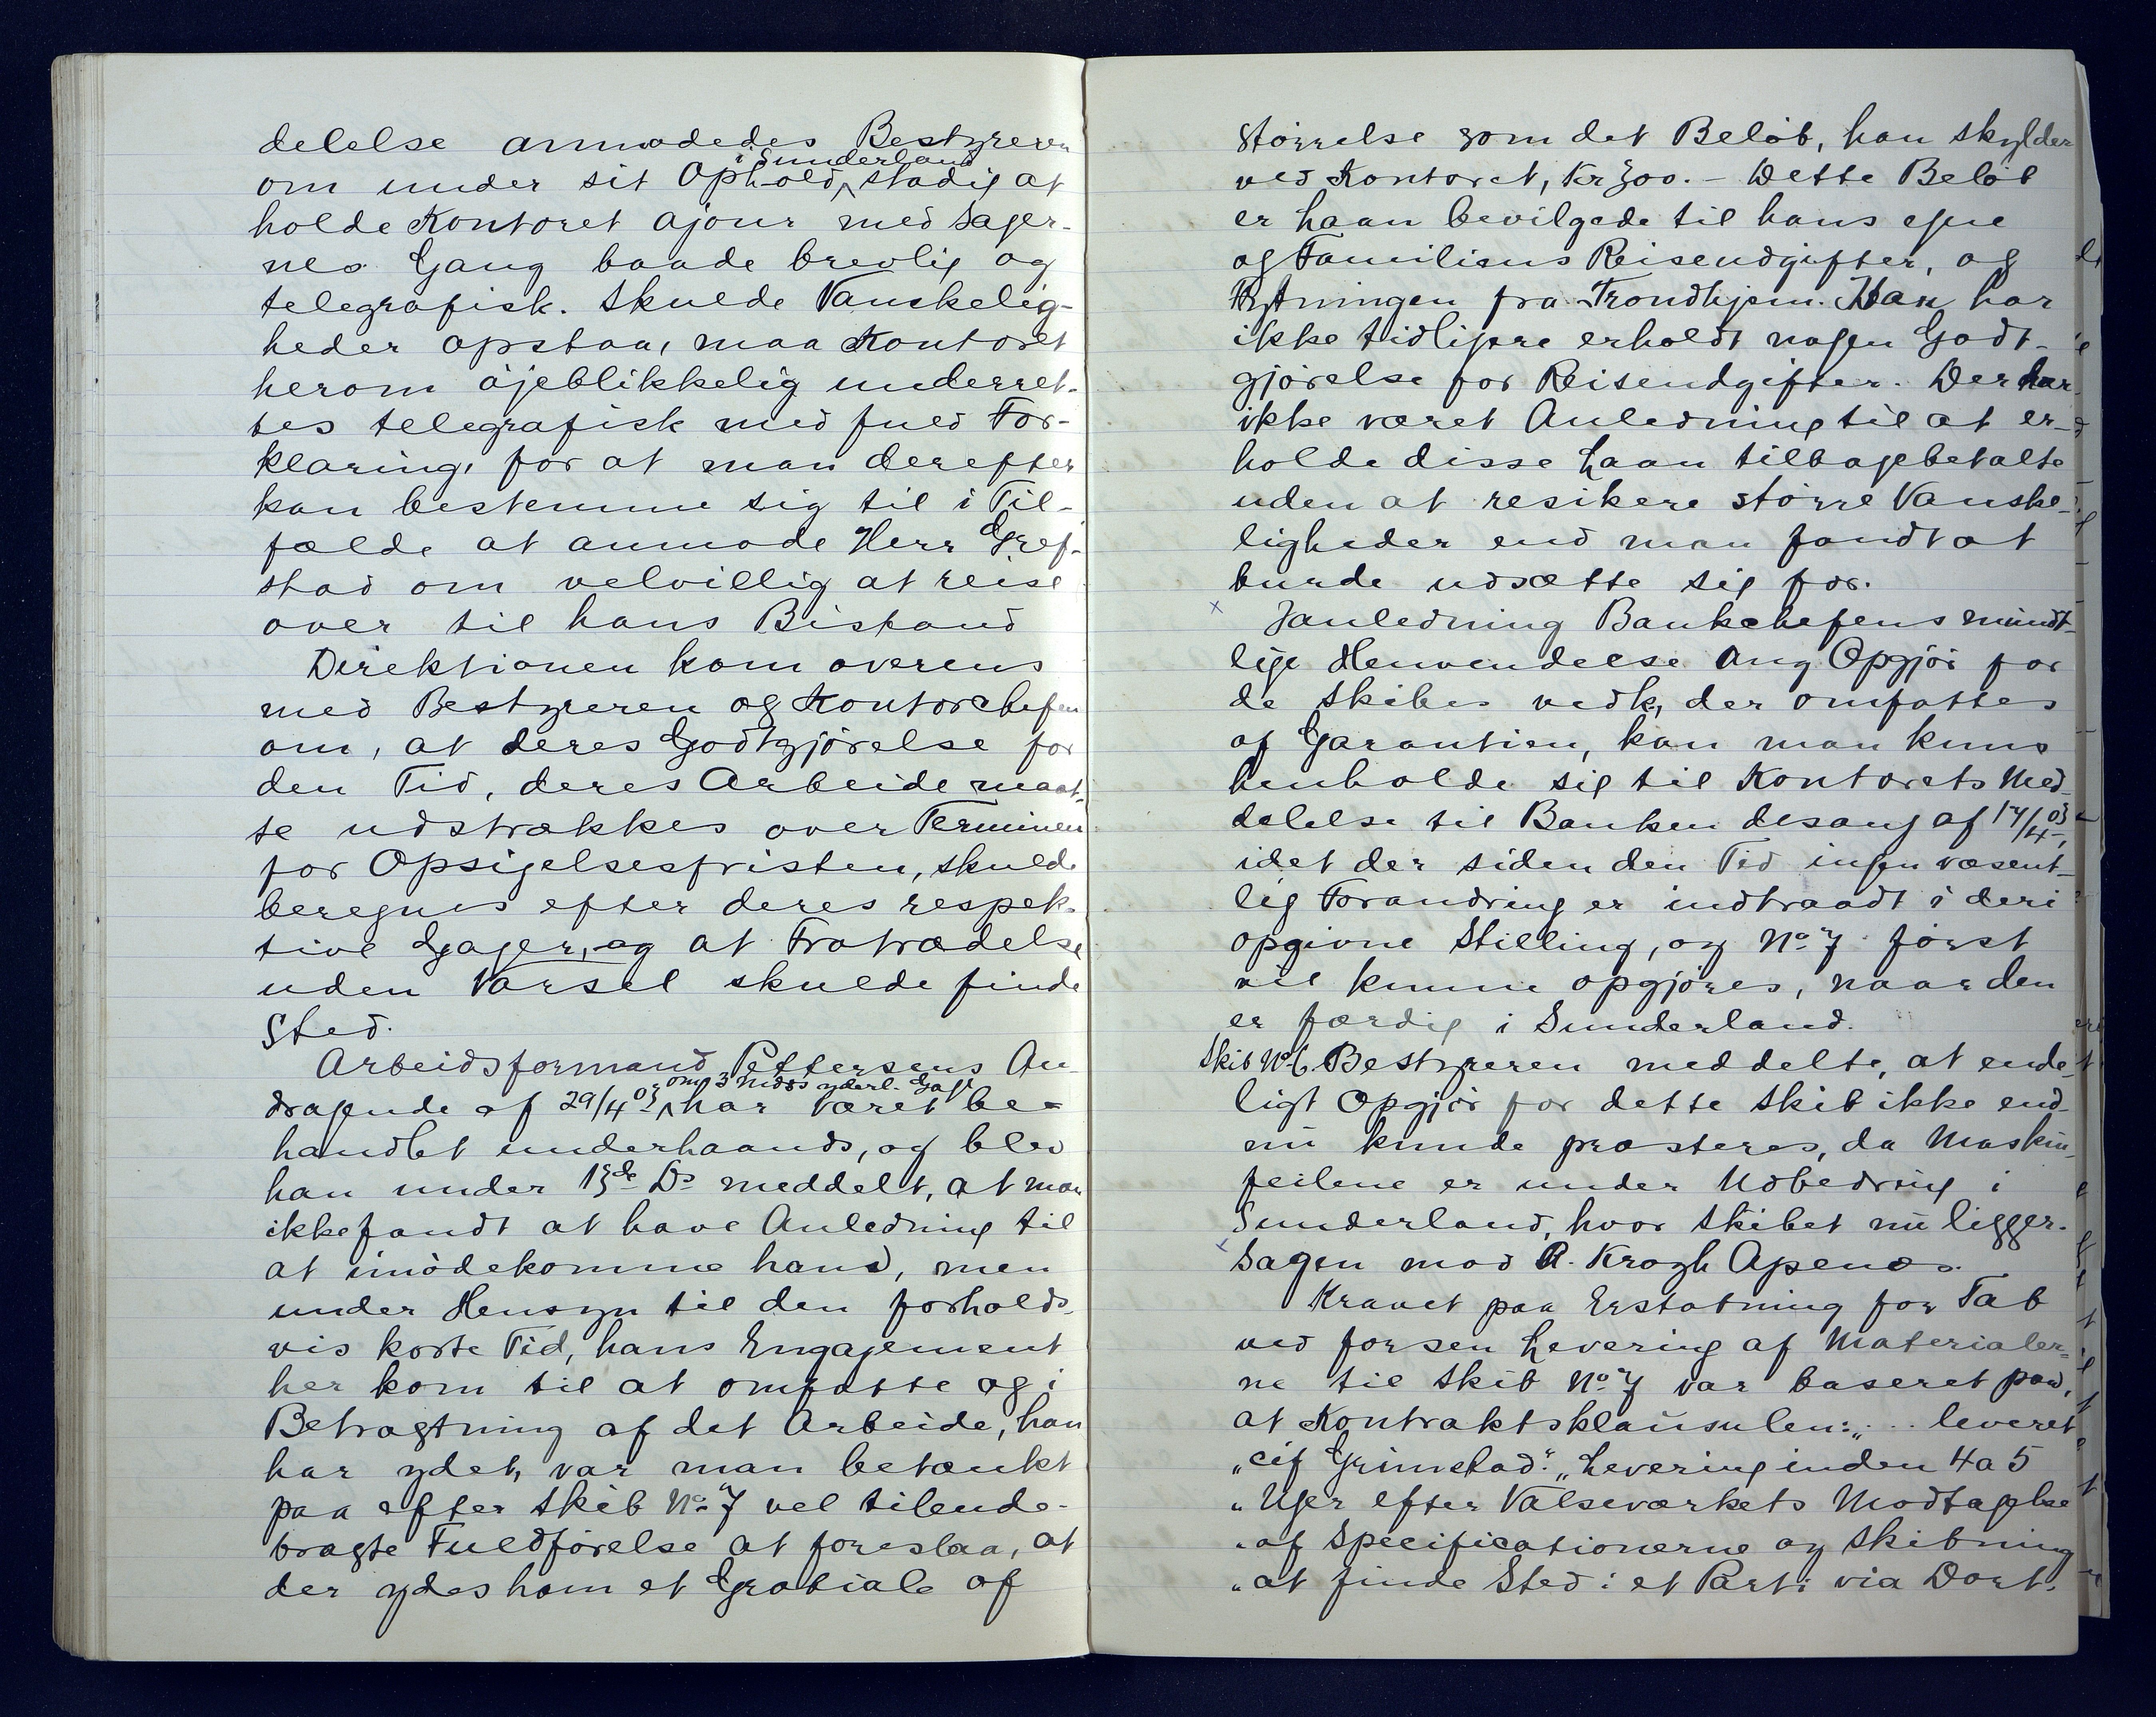 delelse anmodedes Bestyreren
i Sunderland
om under sit Ophold stadig at
holde Kontoret ajour med Sager-
nes Gang baade brevlig og
telegrafisk. Skulde Vanskelig-
heder opstaa, maa Kontoret
herom öjeblikkelig underret-
tes telegrafisk med fuld For-
klaring, for at man derefter
kan bestemme sig til i Til-
fælde at anmode Herr Gref-
stad om velvillig at reise
over til hans Bistand
Direktionen kom overens
med Bestyreren og Kontorchefen
om, at deres Godtgjörelse for
den Tid, deres Arbeide maat-
te udstrækkes over Terminen
for Opsigelsesfristen, skulde
beregnes efter deres respek-
tive Gager, og at Fratrædelse
uden Varsel skulde finde
Sted.
Arbeidsformand Pettersens An-
om 3 Mdrs yderl. Gage
dragende af 29/4 03 har været be-
handlet underhaands, og blev
han under 13de Ds meddelt, at man
ikke fandt at have Anledning til
at imödekomme hans, men
under Hensyn til den forholds-
vis korte Tid, hans Engagement
her kom til at omfatte og i
Betragtning af det Arbeide, han
har ydet, var man betænkt
paa efter Skib No 7 vel tilende-
bragte Fuldförelse at foreslaa, at
der ydes ham et Gratiale af
Störrelse som det Belöb, han skylder
ved Kontoret, Kr 300.- Dette Belöb
er Laan bevilgede til hans egne
og Familiens Reiseudgifter, og
Flytningen fra Trondhjem. Han har
ikke tidligere erholdt nogen Godt-
gjörelse for Reiseudgifter. Der har
ikke været Anledning til at er-
holde disse Laan tilbagebetalte
uden at resikere större Vanske-
ligheder end man fandt at
burde udsætte sig for.
x Janledning Bankchefens mündt-
lige Henvendelse ang Opgjör for
de Skibes vedk, der omfattes
af Garantien, kan man kuns
henholde sig til Kontorets Med-
delelse til Banken desang af 17/4 03,
idet der siden den Tid ingen væsent-
lig Forandring er indtraadt i deri
opgivne Stilling, og No 7 först
vil kunne opgjöres, naar den
er færdig i Sunderland.
Skib No 6. Bestyreren meddelte, at ende-
ligt Opgjör for dette Skib ikke end-
nü kunde præsteres, da Maskin-
feilene er under Udbedring i
Sunderland, hvor Skibet nü ligger.
x Sagen mod A. Krogh Apenæs.
Kravet paa Erstatning for Tab
ved forsen Levering af Materialer-
ne til Skib No 7 var baseret paa,
at Kontraktsklaüsulen: „... leveret
„cif Grimstad." „Levering inden 4 a 5
„Uger efter Valseværkets Modtagelse
„af Specificationerne og Skibning
„at finde Sted i et Parti via Dort-